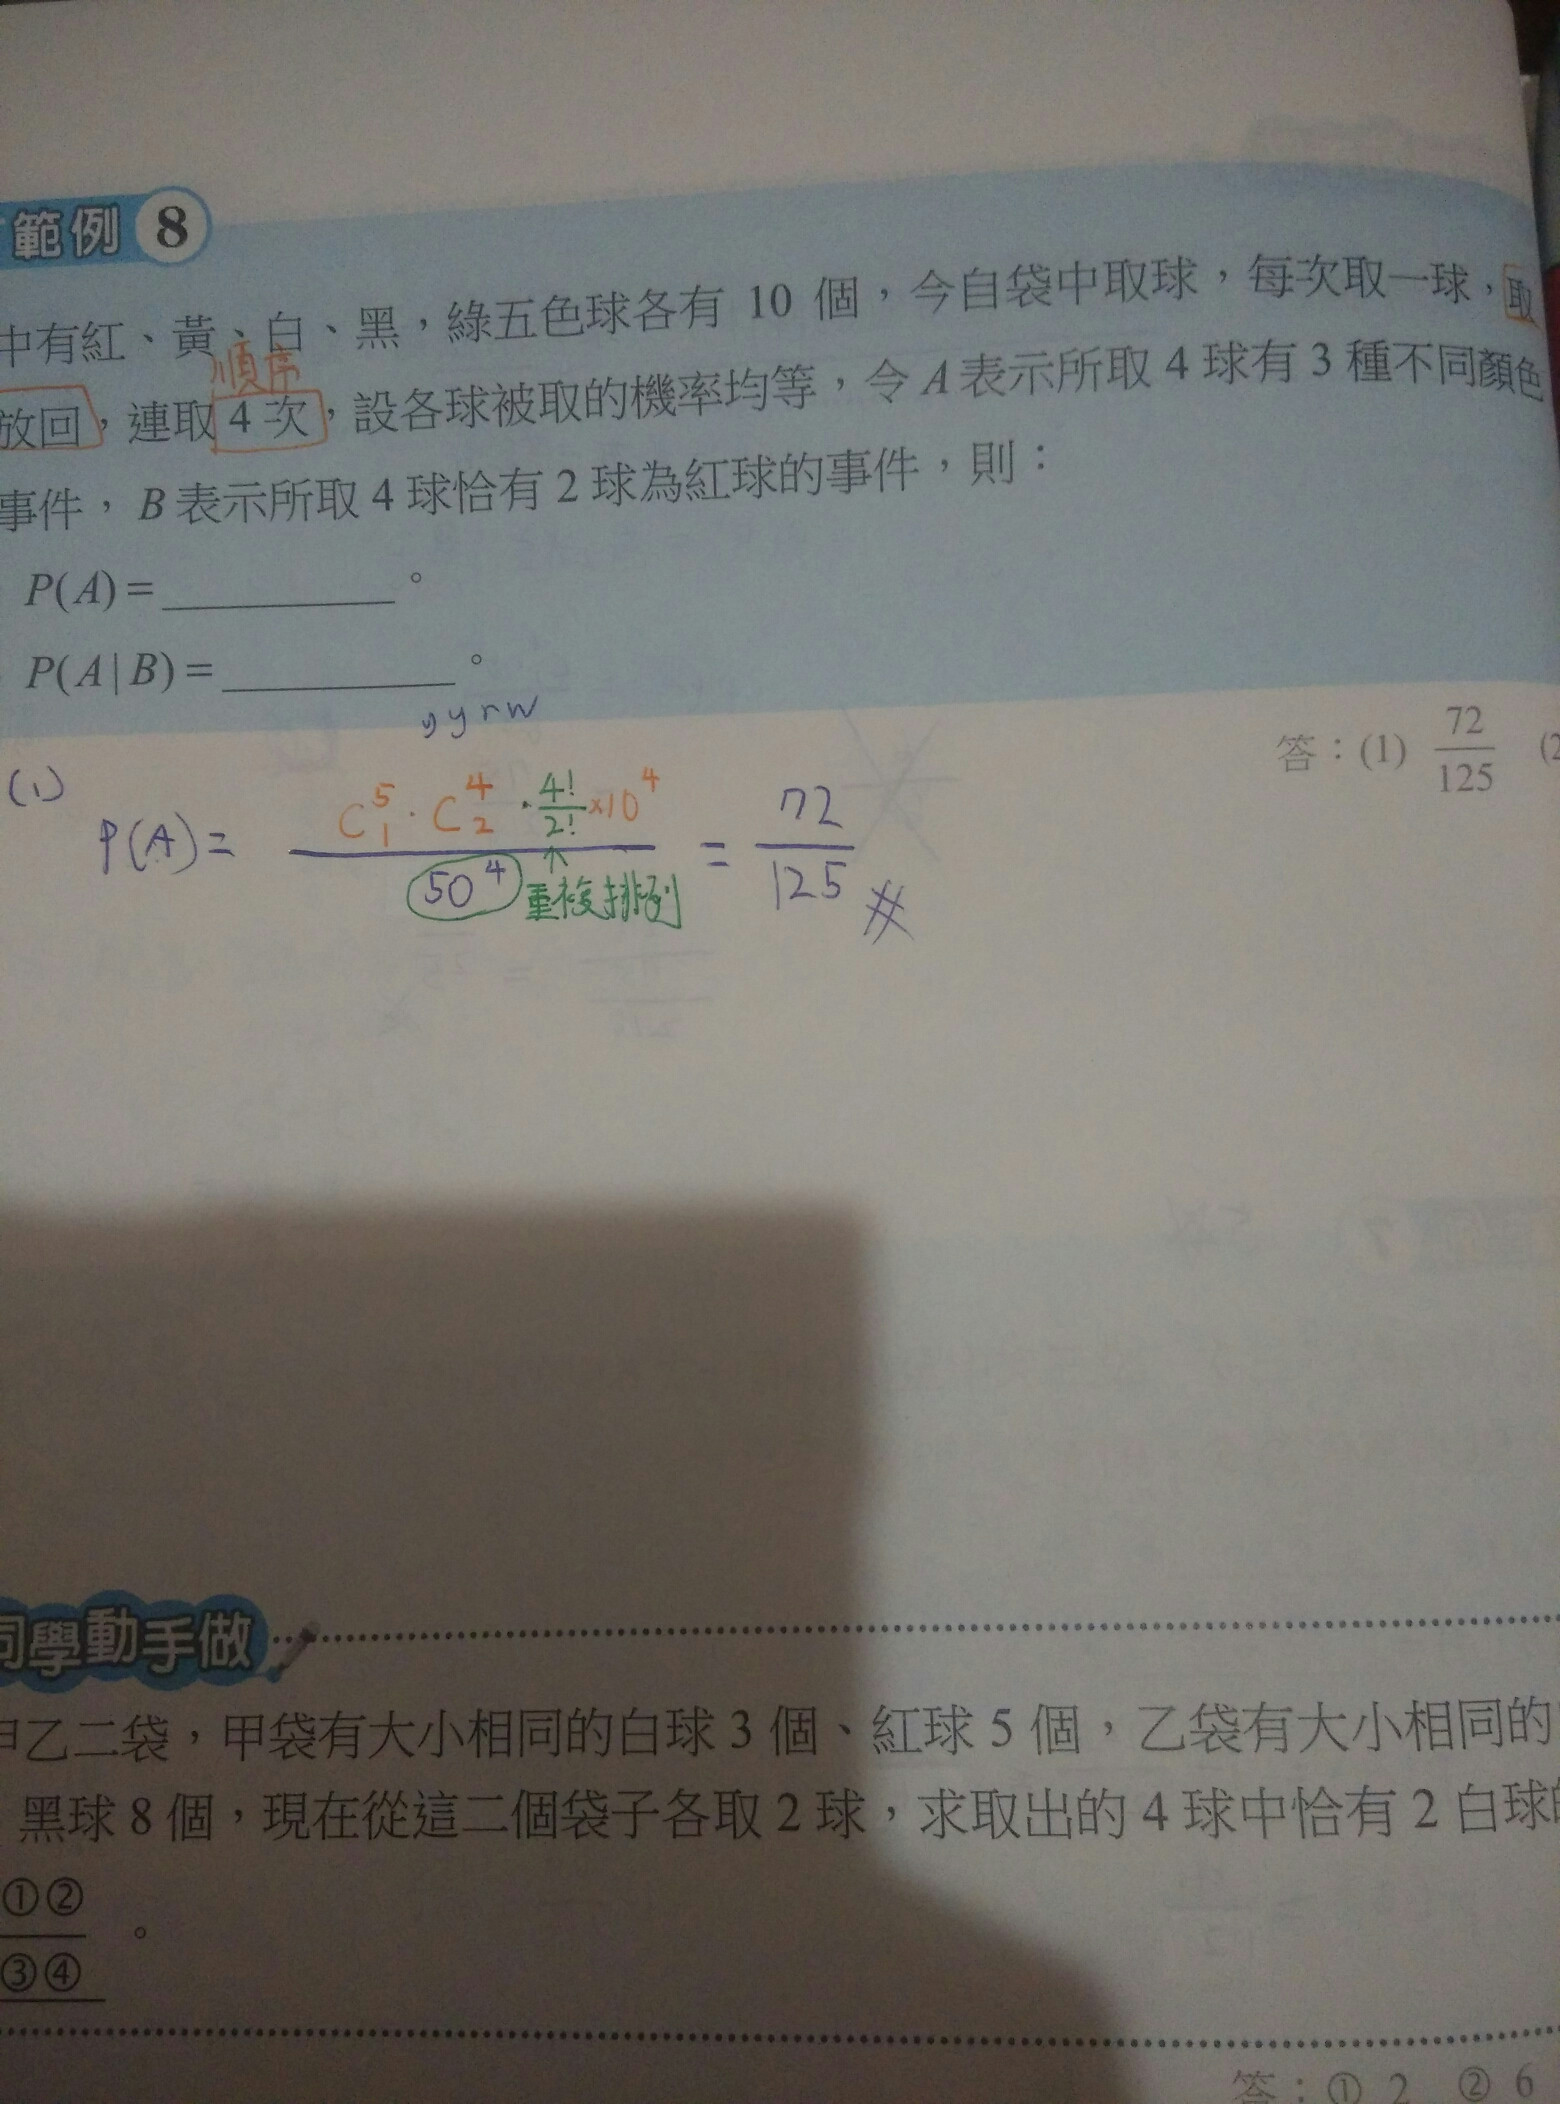 範例 8
中有紅、黃、白、黑,綠五色球各有 10 個,今自袋中取球,每次取一球,取
順序
放回,連取 4 次,設各球被取的機率均等,令 A 表示所取 4 球有 3 種不同顏色
事件,B 表示所取 4 球恰有 2 球為紅球的事件,則:
P(A) = ________。
P(A|B) = ________。
y y r w
答:(1) 72/125 (2
(1) P(A) = (C⁵₁ · C⁴₂ · 4!/2! × 10⁴) / 50⁴ = 72/125 #
重複排列
同學動手做
甲乙二袋,甲袋有大小相同的白球 3 個、紅球 5 個,乙袋有大小相同的
黑球 8 個,現在從這二個袋子各取 2 球,求取出的 4 球中恰有 2 白球的
①②
③④ 。
答:① 2 ② 6